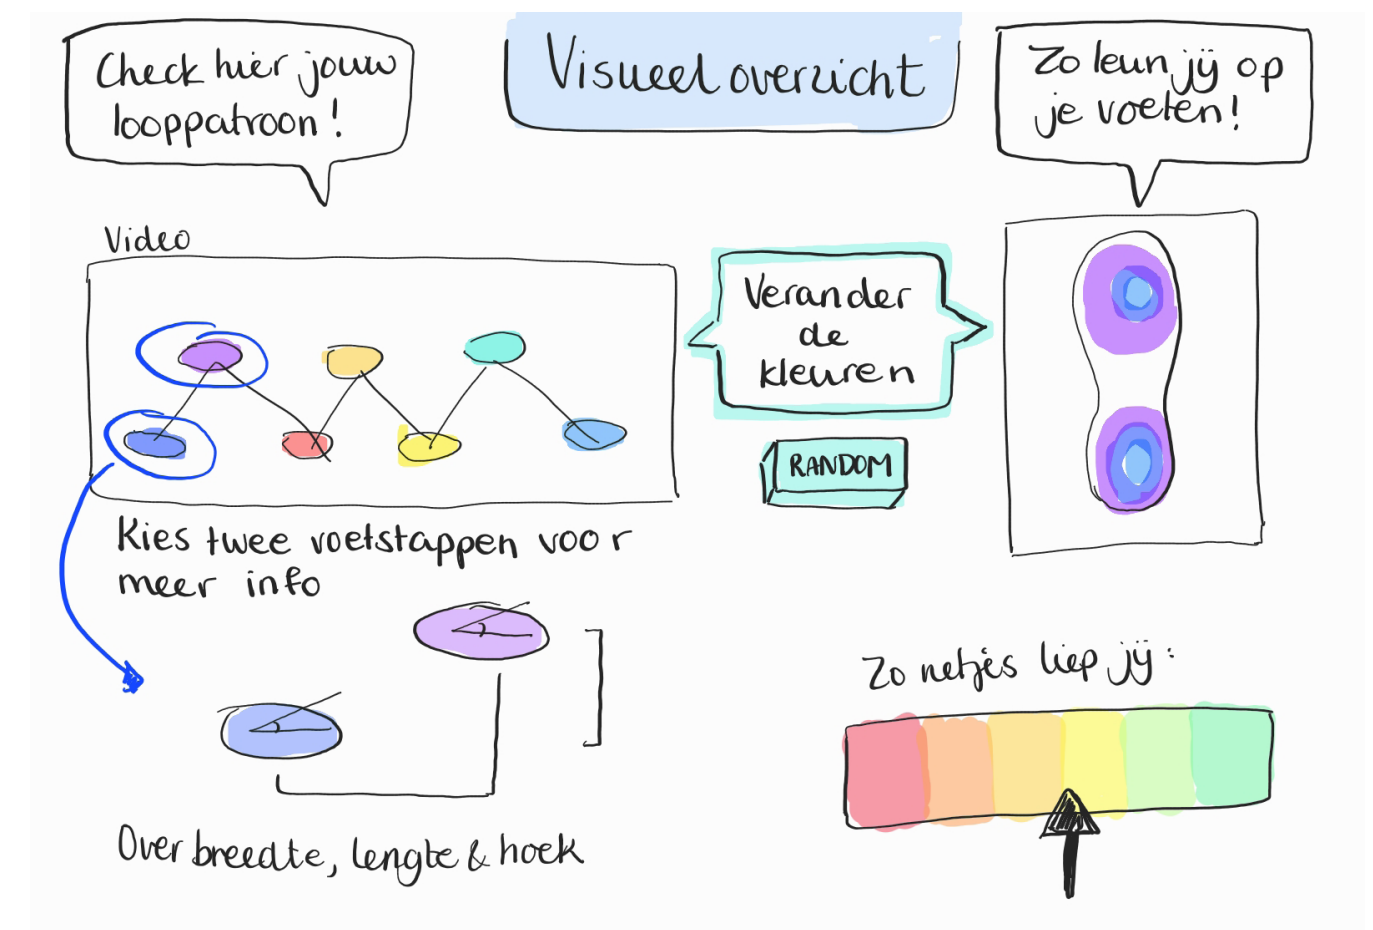 Check hier jouw
looppatroon!
Visueel overzicht
Zo leun jij op
je voeten!
Video
Verander
de
kleuren
RANDOM
Kies twee voetstappen voor
meer info
Zo netjes liep jij:
Over breedte, lengte & hoek